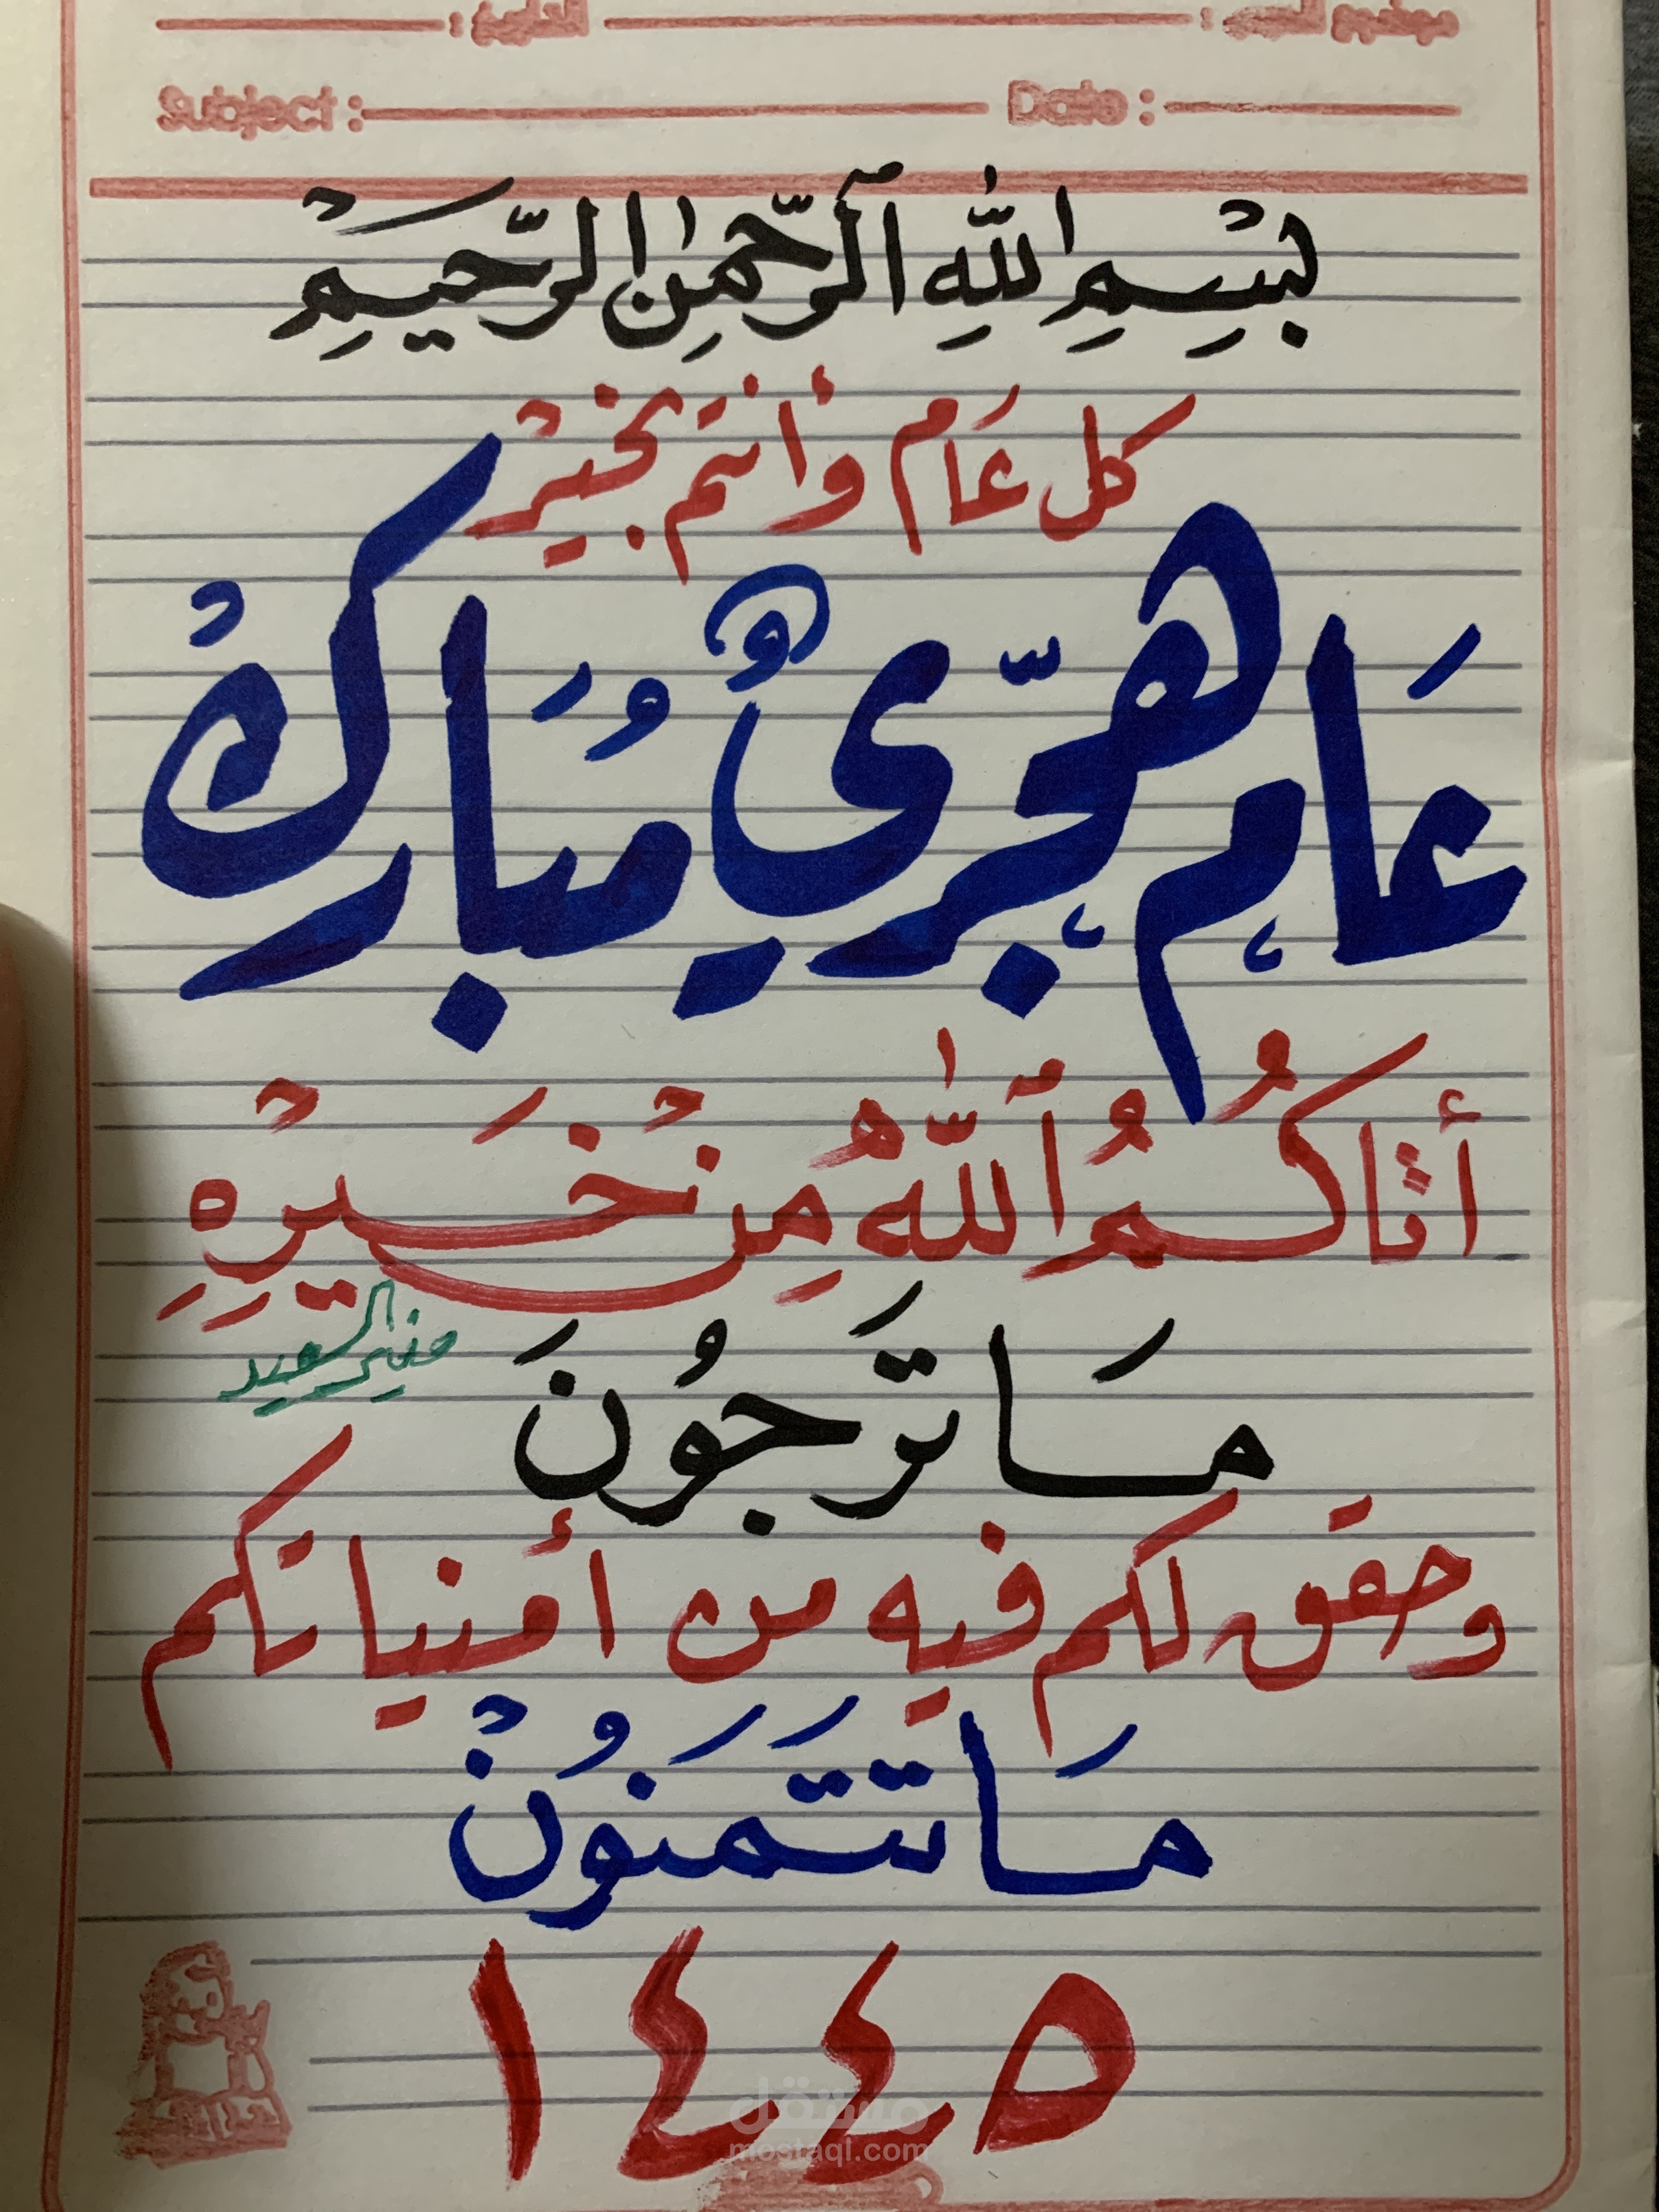 موضوع الدرس : التاريخ :
Subject : Date :
بِسْمِ اللّٰهِ ٱلرَّحْمٰنِ الرَّحِيمِ
كل عَام وأنتم بخيْر
عَام هجّريٌ مُبَارك
أتاكُمُ ٱللّٰهُ مِنْ خَيْرِهِ
مَا تَرجُونَ
منير السعيد
وحقق لكم فيه من أمنياتكم
مَا تَتَمَنُونْ
١٤٤٥
مستقل
mostaql.com